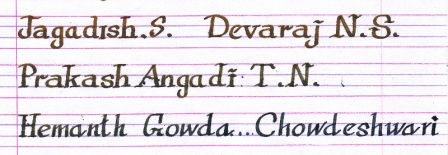 Jagadish.S. Devaraj N.S.
Prakash Angadi T.N.
Hemanth Gowda... Chowdeshwari